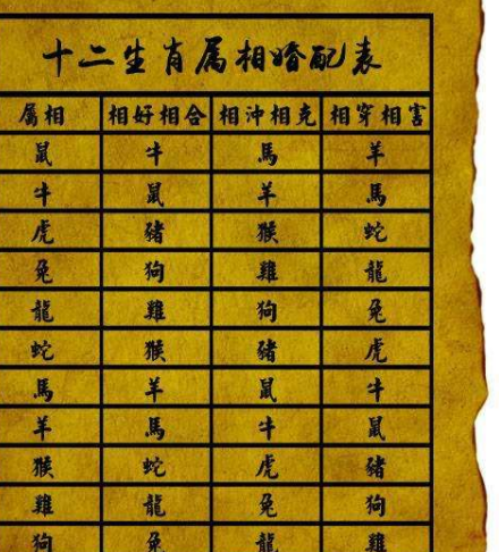 十二生肖属相婚配表
屬相 相好相合 相沖相克 相穿相害
鼠 牛 馬 羊
牛 鼠 羊 馬
虎 豬 猴 蛇
兔 狗 雞 龍
龍 雞 狗 兔
蛇 猴 豬 虎
馬 羊 鼠 牛
羊 馬 牛 鼠
猴 蛇 虎 豬
雞 龍 兔 狗
狗 兔 龍 雞